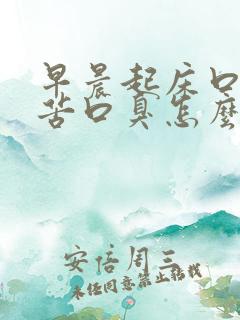 早晨起床口
苦口臭怎麼
安信周三
未經同意禁止轉載